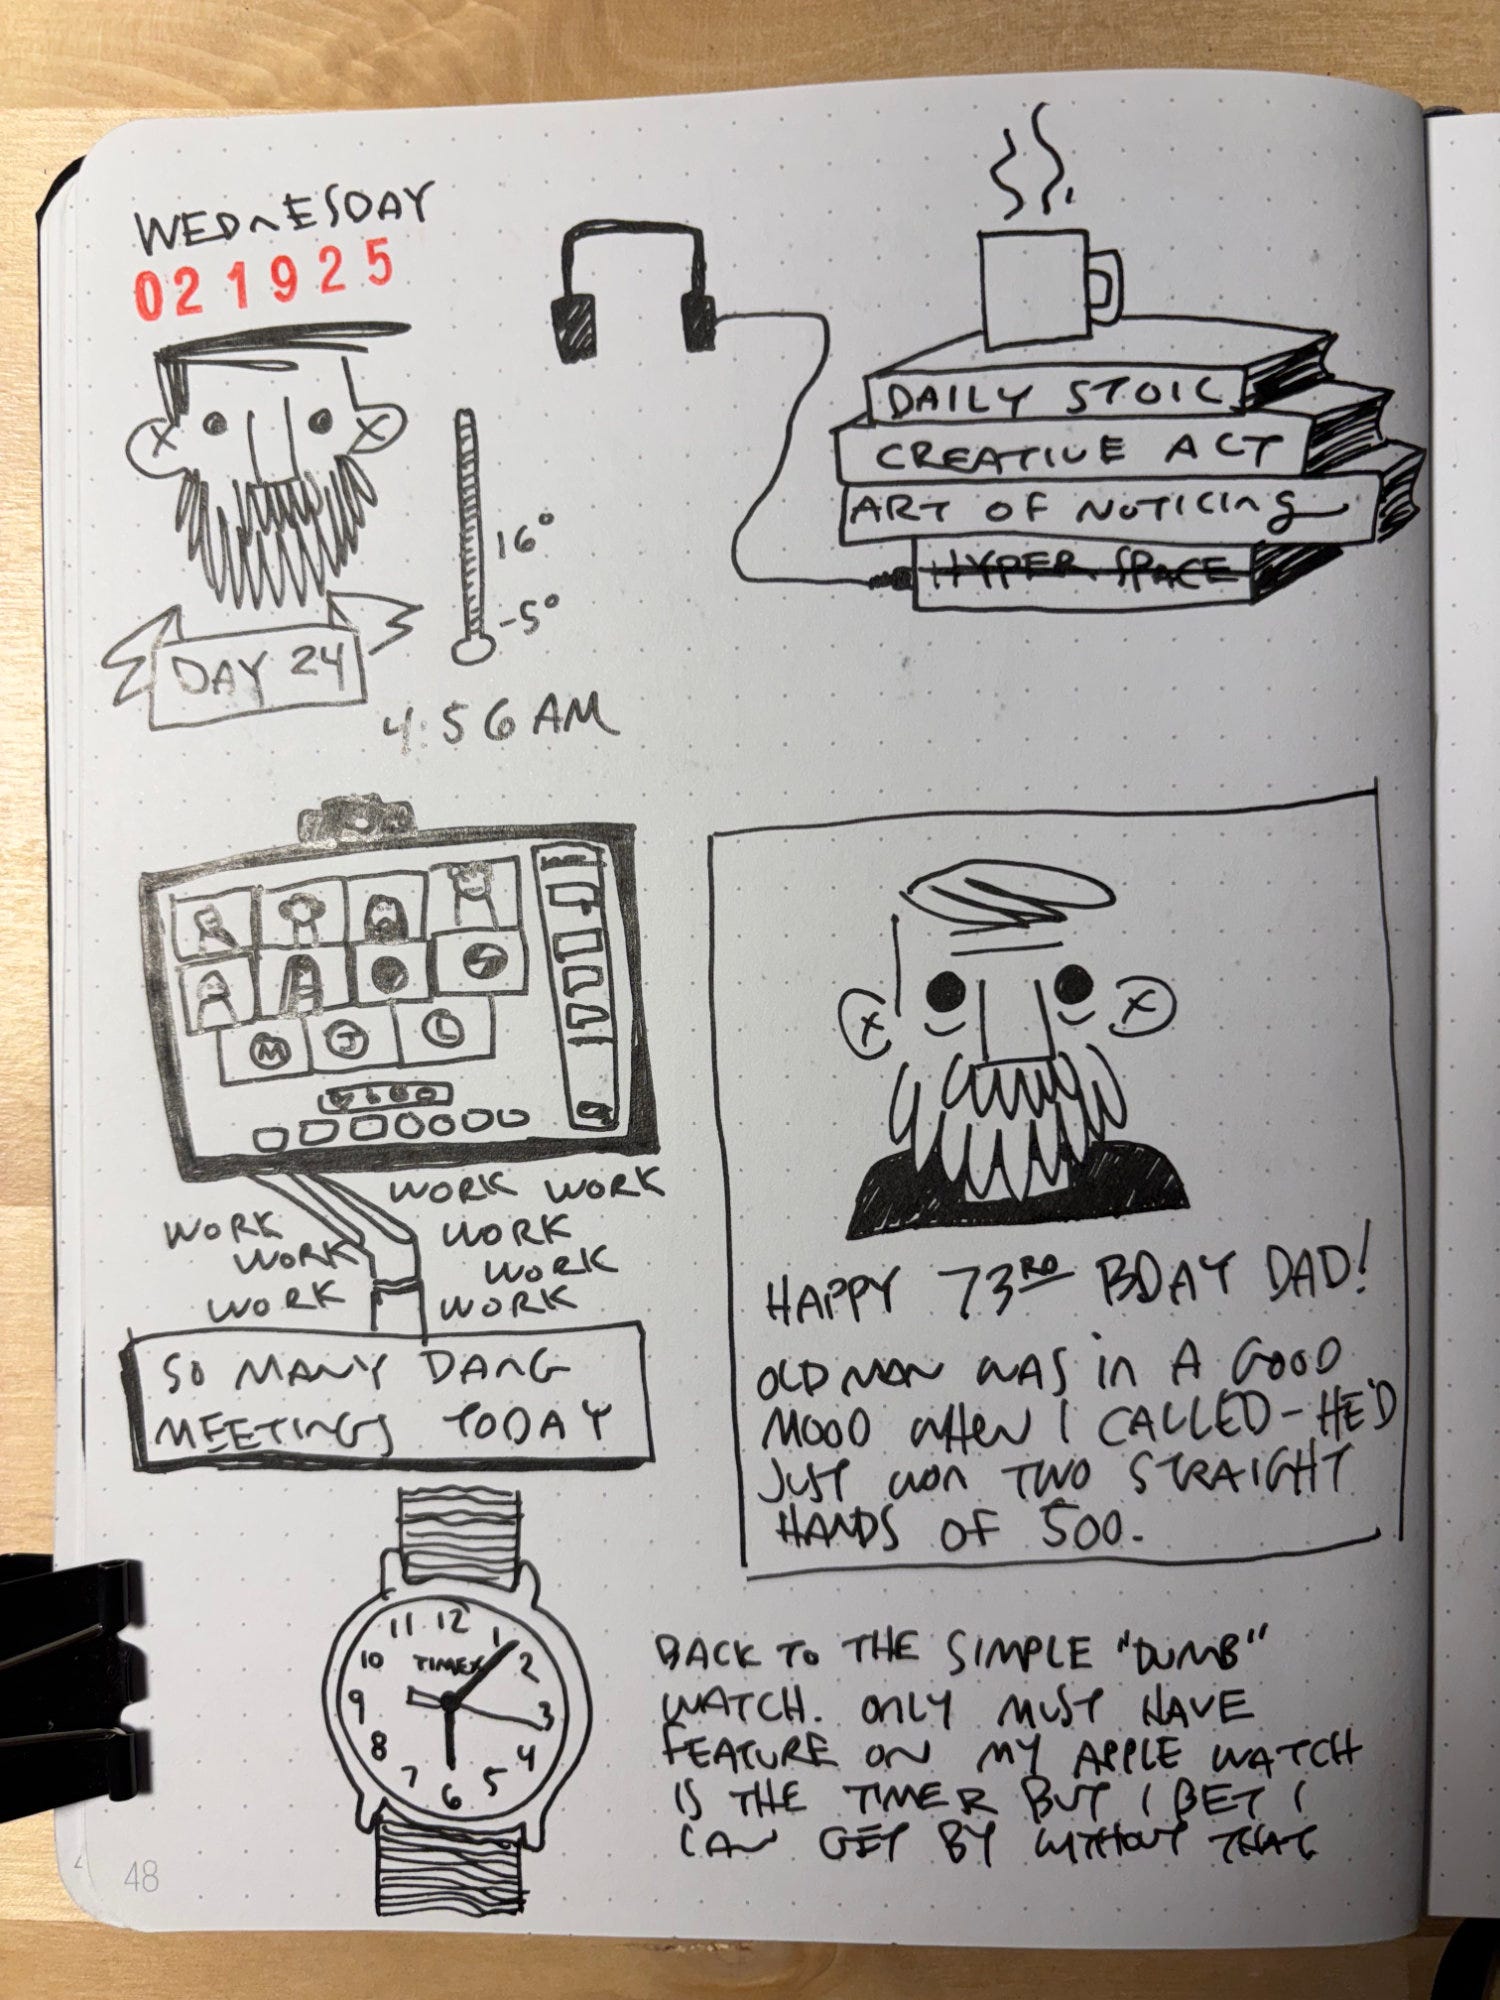 WEDNESDAY
021925
DAY 24
16°
-5°
4:56 AM
DAILY STOIC
CREATIVE ACT
ART OF NOTICING
HYPER SPACE
M J L
WORK WORK
WORK WORK
WORK WORK
WORK WORK
SO MANY DANG
MEETINGS TODAY
HAPPY 73RD BDAY DAD!
OLD MAN WAS IN A GOOD
MOOD WHEN I CALLED - HE'D
JUST WON TWO STRAIGHT
HANDS OF 500.
11 12 1
10 TIMEX 2
9 3
8 4
7 6 5
BACK TO THE SIMPLE "DUMB"
WATCH. ONLY MUST HAVE
FEATURE ON MY APPLE WATCH
IS THE TIMER BUT I BET I
CAN GET BY WITHOUT THAT
48